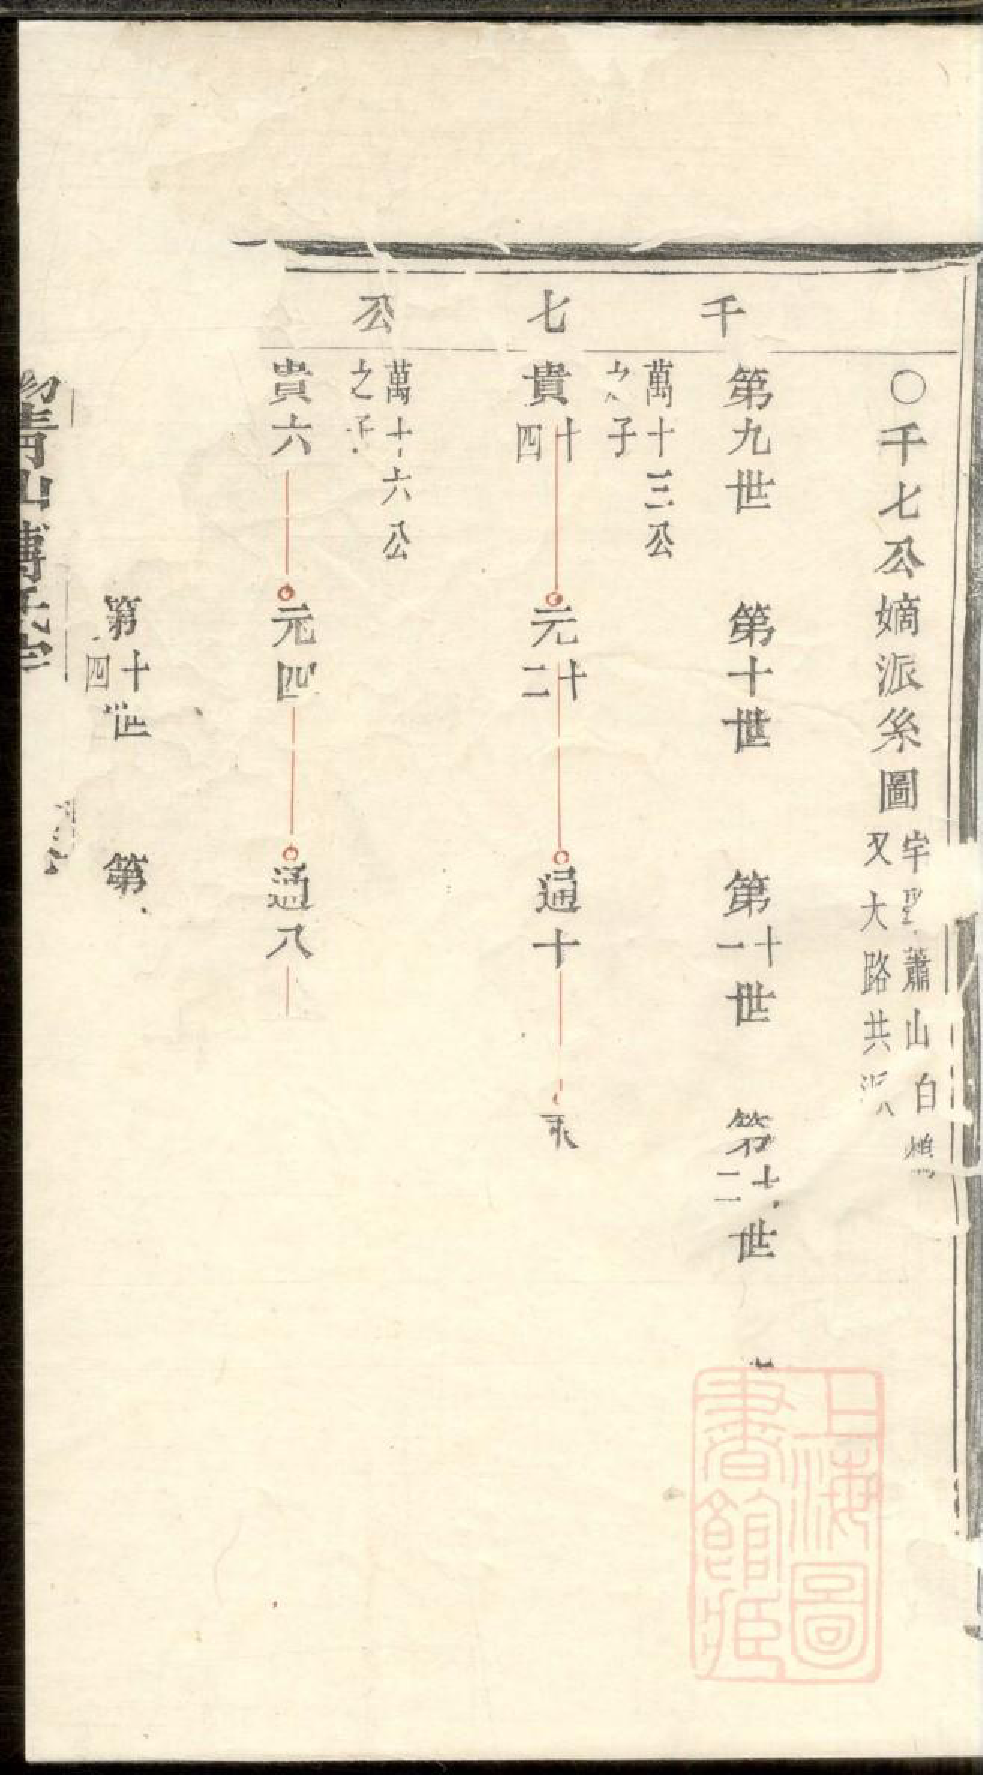 ○千七公嫡派系圖
宇聖蕭山白
又大路共派
千
七
公
第九世
第十世
第十一世
第十二世
萬十三公
之子
貴十四
元十二
通十
萬十六公
之子
貴六
元四
通八
第十四世
第
青山傅氏宗
上海圖
書館藏